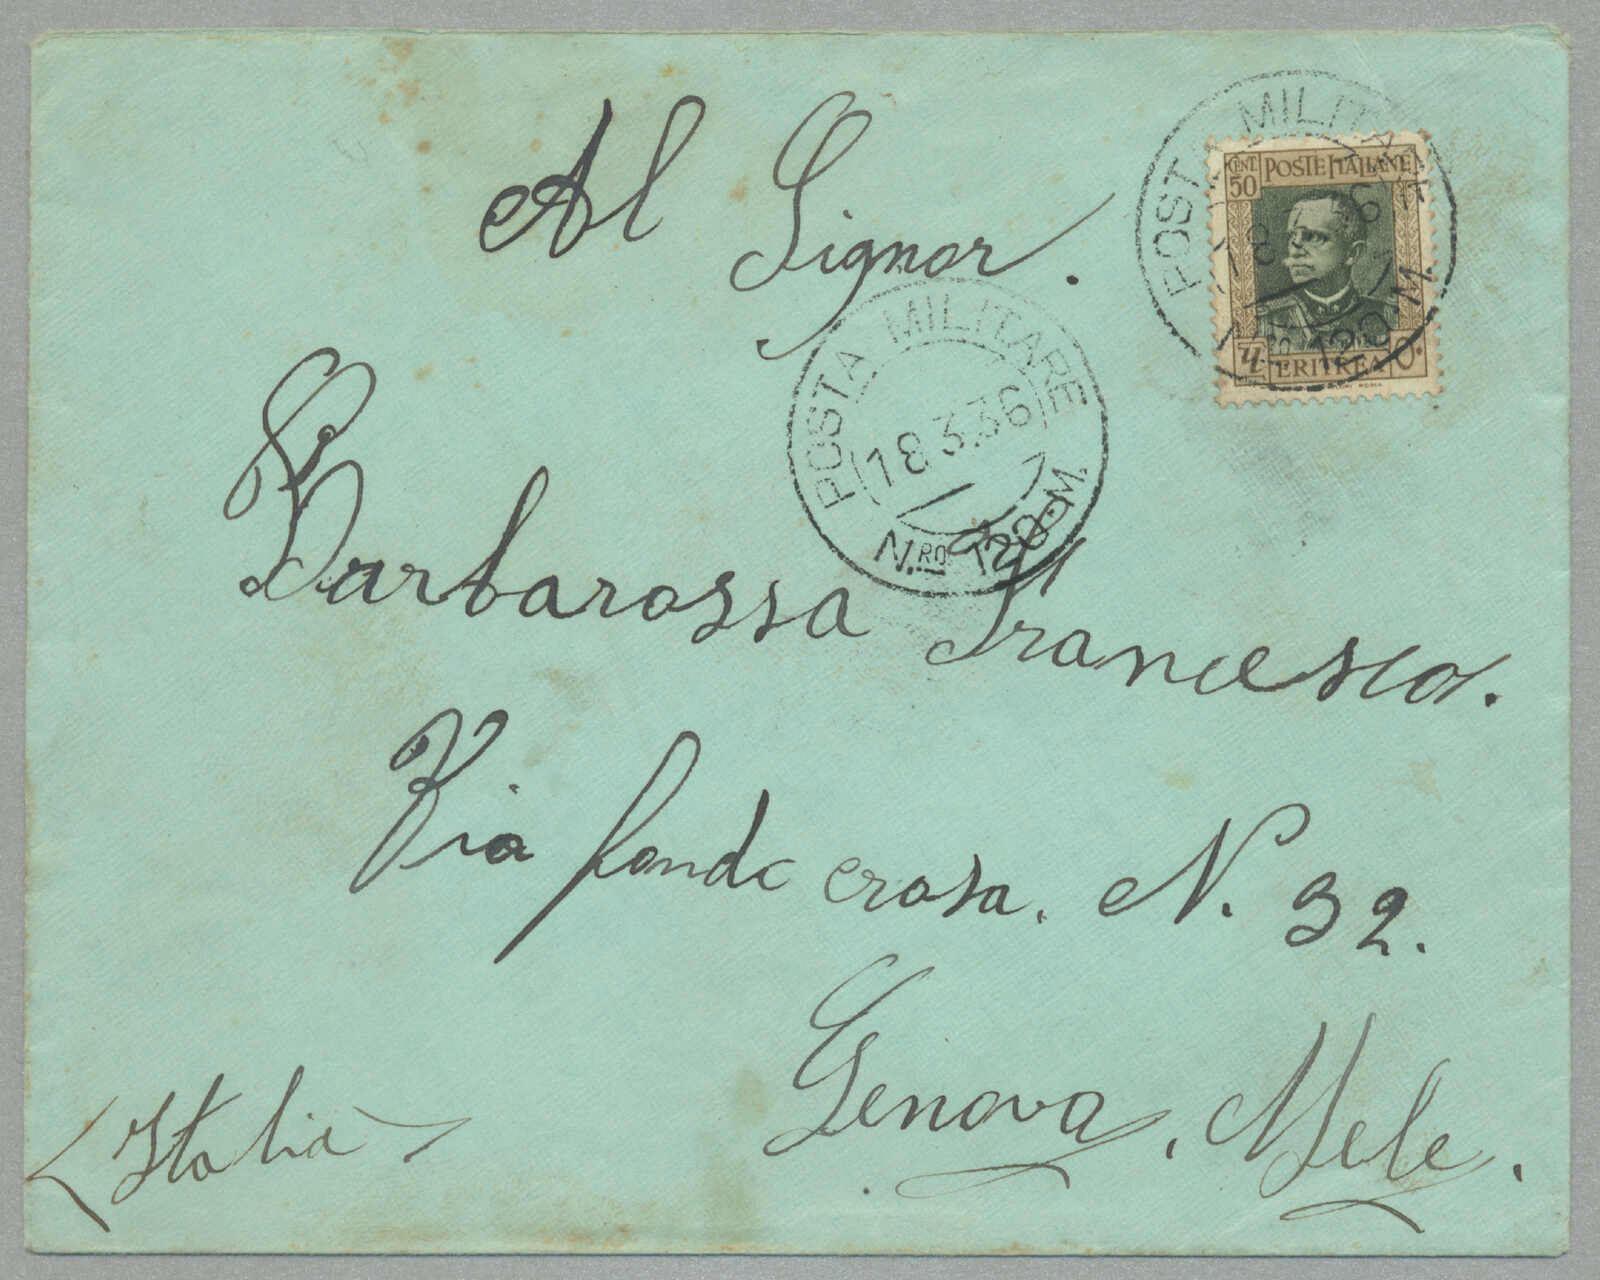 Al Signor.
Barbarossa Francesco.
Via fondo crosa. N. 32.
Genova. Mele.
Italia
POSTA MILITARE
18.3.36
N.RO 120 M.
POSTA MILITARE
18 36
N.RO 120 M.
CENT 50 POSTE ITALIANE
ERITREA